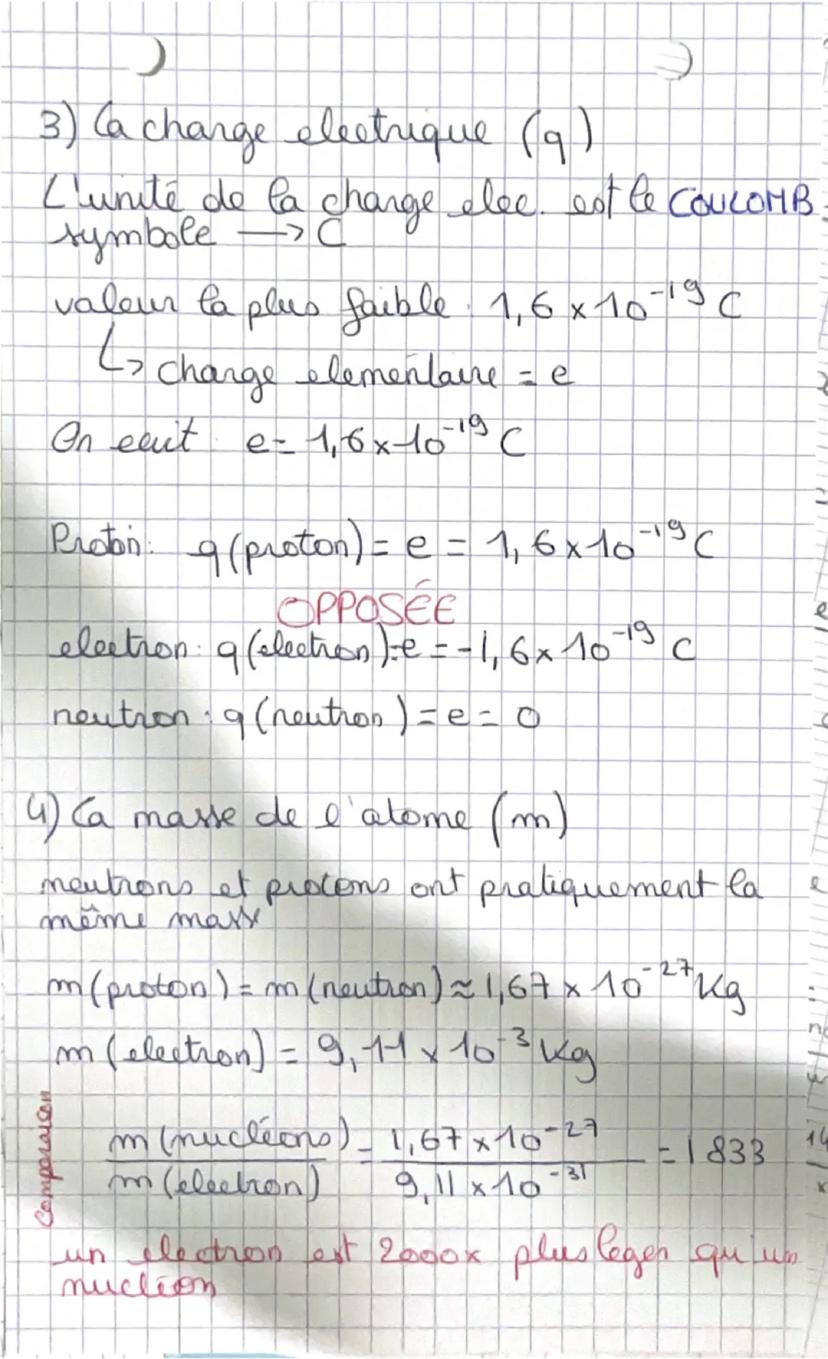 3) La charge electrique (q)
L'unité de la charge elec. est le COULOMB.
symbole → C
valeur la plus faible : 1,6 × 10⁻¹⁹ C
↳ charge elementaire = e
On ecrit e = 1,6 × 10⁻¹⁹ C
Proton : q (proton) = e = 1, 6 × 10⁻¹⁹ C
OPPOSÉE
electron : q (electron) = -e = -1, 6 × 10⁻¹⁹ C
neutron : q (neutron) = e = 0
4) La masse de l'atome (m)
neutrons et protons ont pratiquement la
même masse
m (proton) = m (neutron) ≈ 1,67 × 10⁻²⁷ Kg
m (electron) = 9,11 × 10⁻³ Kg
Comparaison
m (nucléons) / m (electron) = 1,67 × 10⁻²⁷ / 9,11 × 10⁻³¹ = 1 833
un electron est 2000x plus leger qu'un
nucléon